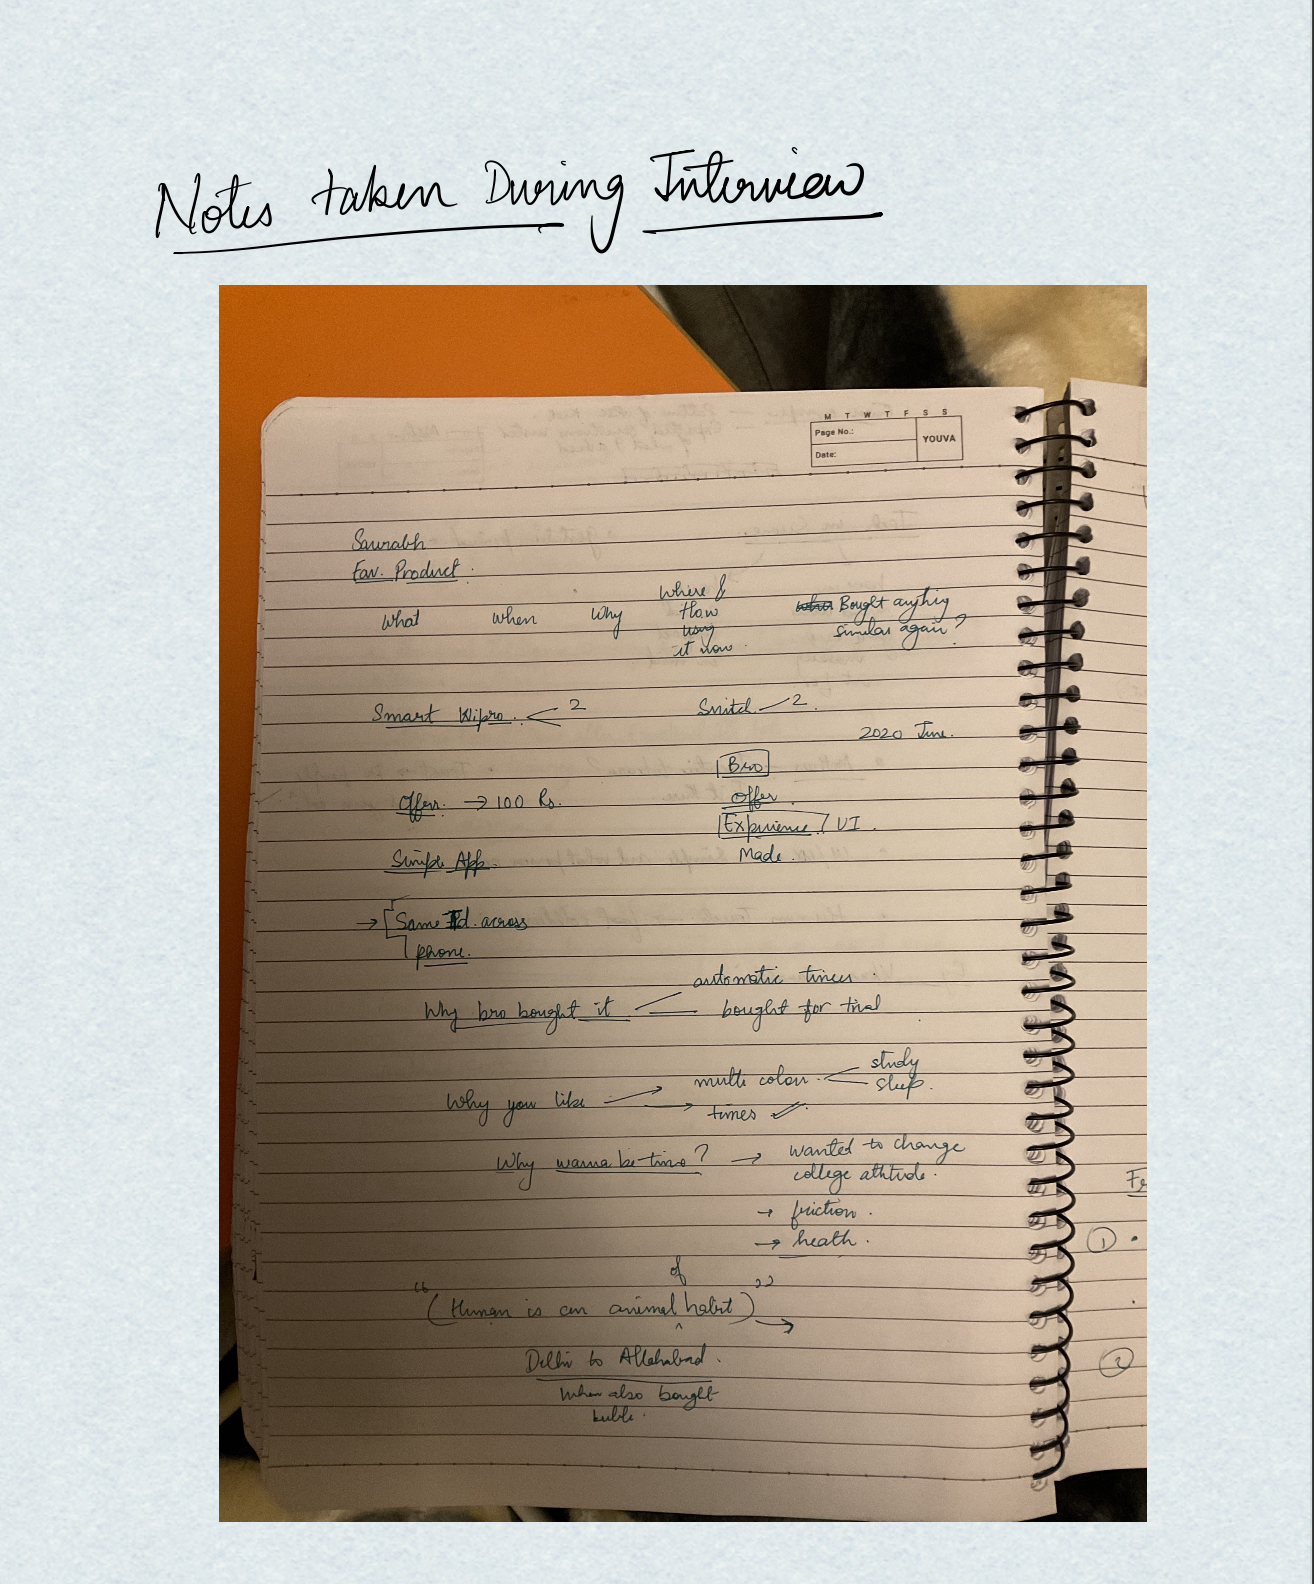 Notes taken During Interview
M T W T F S S
Page No.:
YOUVA
Date:
Saurabh
Fav. Product.
What when Why Where & How using it now. Bought anything similar again?
Smart Wipro. 2 2.
2020 June.
Bro
Offers. → 100 Rs. Offer.
Experience / UI.
Simple App. Made.
→ Same Id. across
phone.
automatic timer.
Why bro bought it bought for trial
study
Why you like → multi colour. sleep.
→ times
Why wanna be time? → wanted to change
college attitude.
→ friction.
→ heath.
of
“(Human is an animal ^ habit)” →
Delhi to Allahabad.
When also bought
1
2